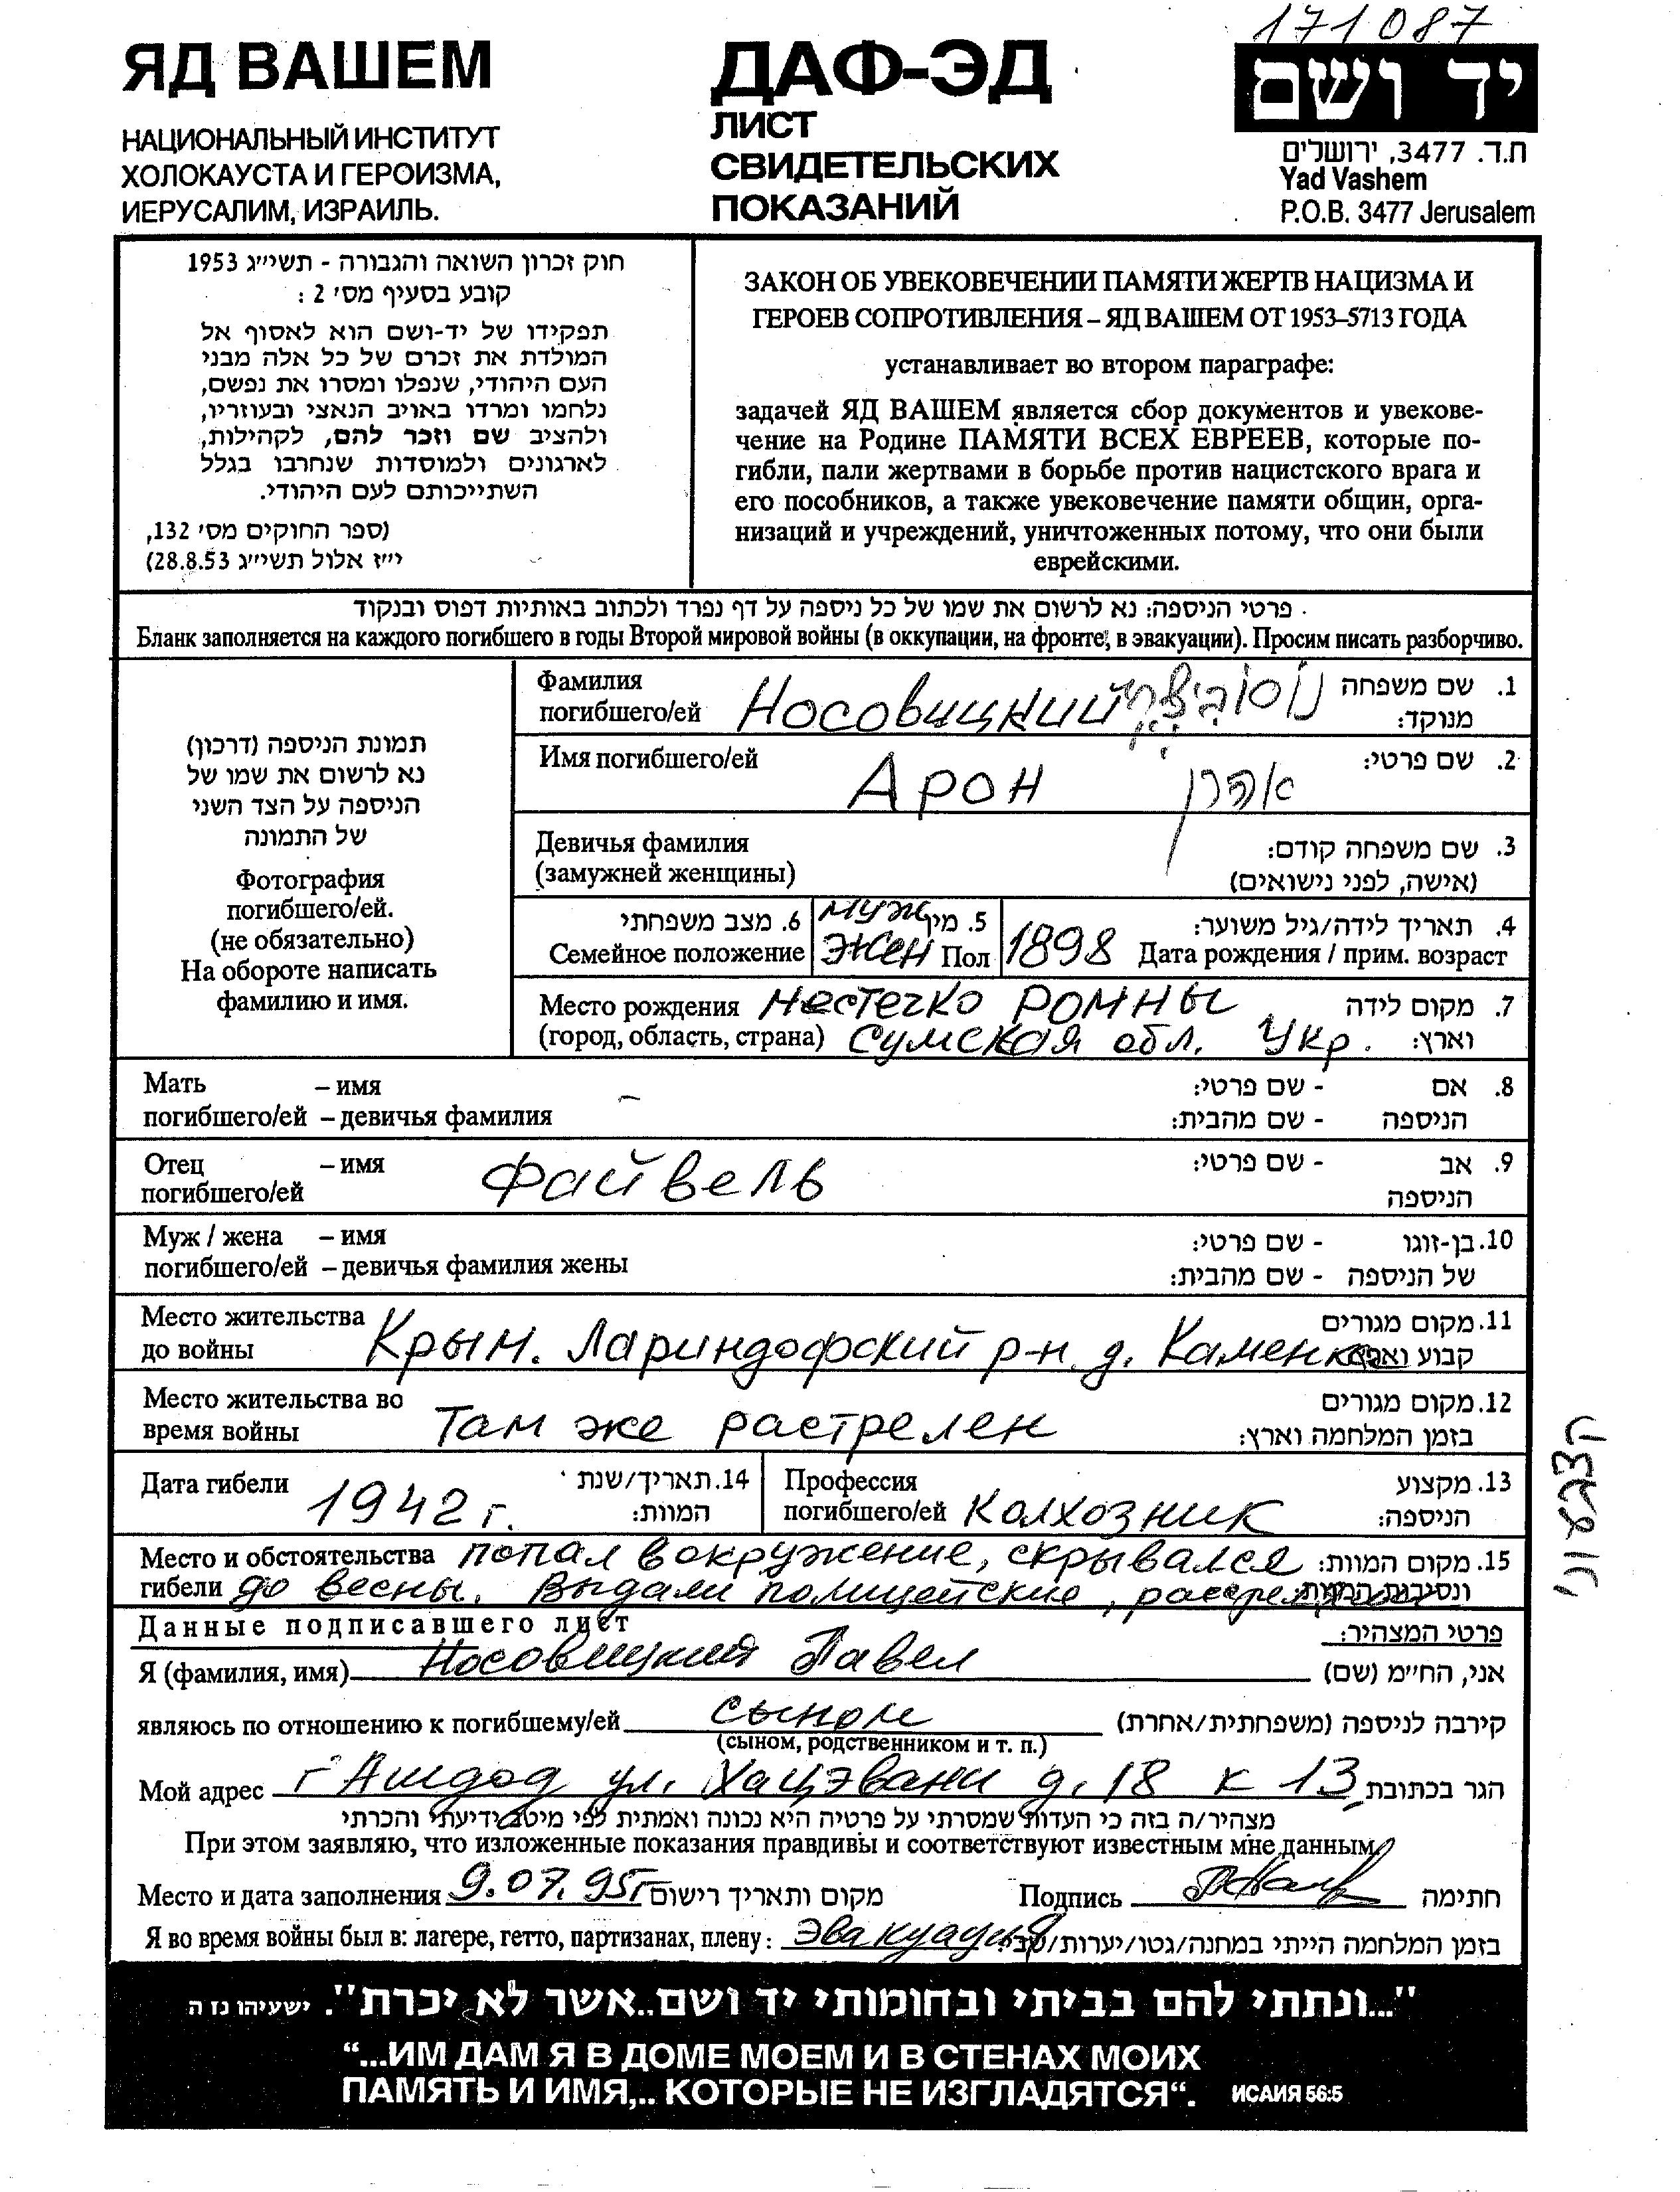 171087
ЯД ВАШЕМ
НАЦИОНАЛЬНЫЙ ИНСТИТУТ
ХОЛОКАУСТА И ГЕРОИЗМА,
ИЕРУСАЛИМ, ИЗРАИЛЬ.
ДАФ-ЭД
ЛИСТ
СВИДЕТЕЛЬСКИХ
ПОКАЗАНИЙ
יד ושם
ת.ד. 3477, ירושלים
Yad Vashem
P.O.B. 3477 Jerusalem
חוק זכרון השואה והגבורה - תשי״ג 1953
קובע בסעיף מס׳ 2 :
תפקידו של יד-ושם הוא לאסוף אל
המולדת את זכרם של כל אלה מבני
העם היהודי, שנפלו ומסרו את נפשם,
נלחמו ומרדו באויב הנאצי ובעוזריו,
ולהציב שם וזכר להם, לקהילות,
לארגונים ולמוסדות שנחרבו בגלל
השתייכותם לעם היהודי.
(ספר החוקים מס׳ 132,
י״ז אלול תשי״ג 28.8.53)
ЗАКОН ОБ УВЕКОВЕЧЕНИИ ПАМЯТИ ЖЕРТВ НАЦИЗМА И
ГЕРОЕВ СОПРОТИВЛЕНИЯ – ЯД ВАШЕМ ОТ 1953–5713 ГОДА
устанавливает во втором параграфе:
задачей ЯД ВАШЕМ является сбор документов и увекове-
чение на Родине ПАМЯТИ ВСЕХ ЕВРЕЕВ, которые по-
гибли, пали жертвами в борьбе против нацистского врага и
его пособников, а также увековечение памяти общин, орга-
низаций и учреждений, уничтоженных потому, что они были
еврейскими.
פרטי הניספה: נא לרשום את שמו של כל ניספה על דף נפרד ולכתוב באותיות דפוס ובנקוד
Бланк заполняется на каждого погибшего в годы Второй мировой войны (в оккупации, на фронте, в эвакуации). Просим писать разборчиво.
תמונת הניספה (דרכון)
נא לרשום את שמו של
הניספה על הצד השני
של התמונה
Фотография
погибшего/ей.
(не обязательно)
На обороте написать
фамилию и имя.
Фамилия
погибшего/ей Носовицкий נוסוביצקי
1. שם משפחה
מנוקד:
Имя погибшего/ей Арон אהרן 2. שם פרטי:
Девичья фамилия
(замужней женщины)
3. שם משפחה קודם:
(אישה, לפני נישואים)
6. מצב משפחתי
Семейное положение
муж 5. מין
жен Пол
1898
4. תאריך לידה/גיל משוער:
Дата рождения / прим. возраст
Место рождения Ромны 7. מקום לידה
(город, область, страна) Сумская обл. Укр. וארץ:
Мать – имя 8. אם - שם פרטי:
погибшего/ей – девичья фамилия הניספה - שם מהבית:
Отец – имя Файвель 9. אב - שם פרטי:
погибшего/ей הניספה
Муж / жена – имя 10. בן-זוגו - שם פרטי:
погибшего/ей – девичья фамилия жены של הניספה - שם מהבית:
Место жительства 11. מקום מגורים
до войны Крым. Лариндофский р-н. д. Каменка קבוע וארץ:
Место жительства во 12. מקום מגורים
время войны Там же растрелен בזמן המלחמה וארץ:
Дата гибели 1942 г. 14. תאריך/שנת
המוות:
Профессия 13. מקצוע
погибшего/ей Колхозник הניספה:
Место и обстоятельства попал в окружение, скрывался 15. מקום המוות:
гибели до весны. Выдали полицейские, ונסיבות המוות:
Данные подписавшего лист פרטי המצהיר:
Я (фамилия, имя) Носовицкий Павел אני, הח״מ (שם)
являюсь по отношению к погибшему/ей сыном קירבה לניספה (משפחתית/אחרת)
(сыном, родственником и т. п.)
Мой адрес г Ашдод ул. Хацэвани д. 18 к 13 הגר בכתובת
מצהיר/ה בזה כי העדות שמסרתי על פרטיה היא נכונה ואמתית לפי מיטב ידיעתי והכרתי
При этом заявляю, что изложенные показания правдивы и соответствуют известным мне данным
Место и дата заполнения 9.07.95г מקום ותאריך רישום Подпись חתימה
Я во время войны был в: лагере, гетто, партизанах, плену: Эвакуация בזמן המלחמה הייתי במחנה/גטו/יערות/שבי:
הצבעוני
"...ונתתי להם בביתי ובחומותי יד ושם..אשר לא יכרת". ישעיהו נז ה
“...ИМ ДАМ Я В ДОМЕ МОЕМ И В СТЕНАХ МОИХ
ПАМЯТЬ И ИМЯ,.. КОТОРЫЕ НЕ ИЗГЛАДЯТСЯ“. ИСАИЯ 56:5